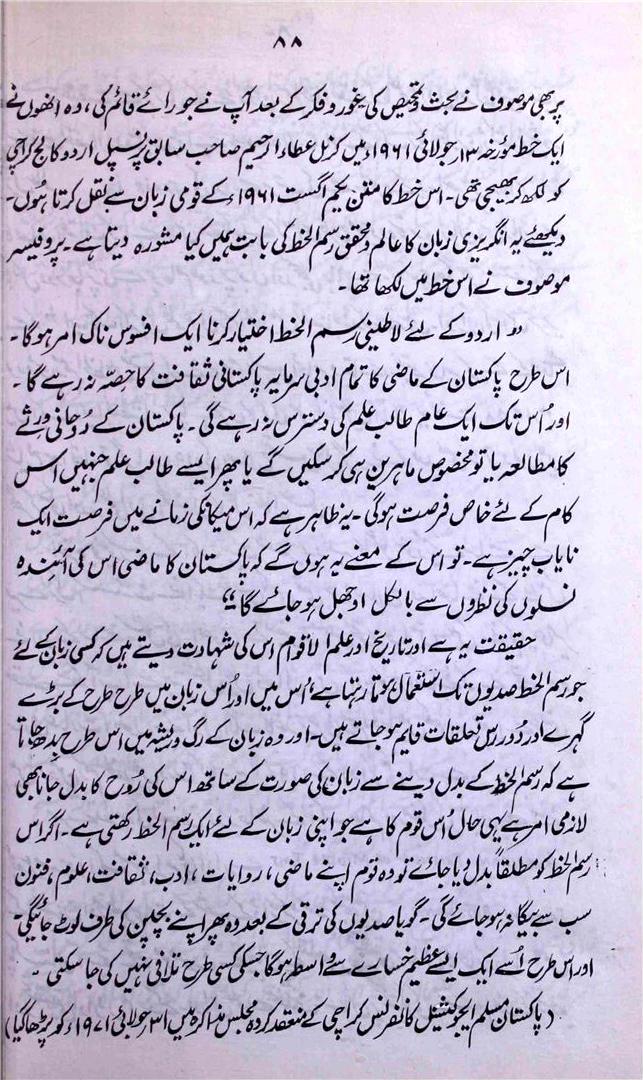 ۸۸
پر بھی موصوف نے بحث و تمحیص کی بغور و فکر کے بعد آپ نے جو رائے قائم کی، وہ انھوں نے
ایک خط مؤرخہ ۱۳ جولائی ۱۹۶۱ء میں کرنل عطاء الرحیم صاحب سابق پرنسپل اردو کالج کراچی
کو لکھ کر بھیجی تھی۔ اس خط کا متن یکم اگست ۱۹۶۱ء کے قومی زبان سے نقل کرتا ہُوں۔
دیکھئے یہ انگریزی زبان کا عالم و محقق رسم الخط کی بابت ہمیں کیا مشورہ دیتا ہے۔ پروفیسر
موصوف نے اس خط میں لکھا تھا۔
”اردو کے لئے لاطینی رسم الخط اختیار کرنا ایک افسوس ناک امر ہو گا۔
اس طرح پاکستان کے ماضی کا تمام ادبی سرمایہ پاکستانی ثقافت کا حصّہ نہ رہے گا۔
اور اُس تک ایک عام طالب علم کی دسترس نہ رہے گی۔ پاکستان کے رُوحانی ورثے
کا مطالعہ یا تو مخصوص ماہرین ہی کر سکیں گے یا پھر ایسے طالب علم جنہیں اس
کام کے لئے خاص فرصت ہو گی۔ یہ ظاہر ہے کہ اس میکانکی زمانے میں فرصت ایک
نایاب چیز ہے۔ تو اس کے معنے یہ ہوں گے کہ پاکستان کا ماضی اس کی آئندہ
نسلوں کی نظروں سے بالکل اوجھل ہو جائے گا“
حقیقت یہ ہے اور تاریخ اور علم الاقوام اس کی شہادت دیتے ہیں کہ کسی زبان کے لئے
جو رسم الخط صدیوں تک استعمال ہوتا رہتا ہے اُس میں اور اُس زبان میں طرح طرح کے بڑے
گہرے اور دُور رس تعلقات قایم ہو جاتے ہیں۔ اور وہ زبان کے رگ و ریشہ میں اس طرح بِدھ جاتا
ہے کہ رسم الخط کے بدل دینے سے زبان کی صورت کے ساتھ اس کی رُوح کا بدل جانا بھی
لازمی امر ہے یہی حال اُس قوم کا ہے جو اپنی زبان کے لئے ایک رسم الخط رکھتی ہے۔ اگر اس
رسم الخط کو مطلقاً بدل دیا جائے تو وہ قوم اپنے ماضی، روایات، ادب، ثقافت، علوم، فنون
سب سے بیگانہ ہو جائے گی۔ گویا صدیوں کی ترقی کے بعد وہ پھر اپنے بچپن کی طرف لوٹ جائیگی۔
اور اس طرح اُسے ایک ایسے عظیم خسارے سے واسطہ ہو گا جسکی کسی طرح تلافی نہیں کی جا سکتی۔
(پاکستان مسلم ایجوکیشنل کانفرنس کراچی کے منعقد کردہ مجلس مذاکرہ میں ۳۱ جولائی ۱۹۷۱ء کو پڑھا گیا)